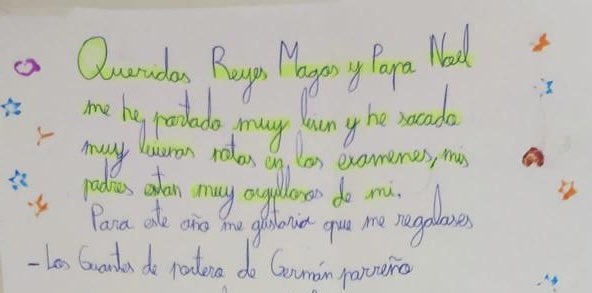 Queridos Reyes Magos y Papa Noel
me he portado muy bien y he sacado
muy buenas notas en los examenes, mis
padres estan muy orgullosos de mi.
Para este año me gustaria que me regalases
- Los Guantes de portero de Germán parreño